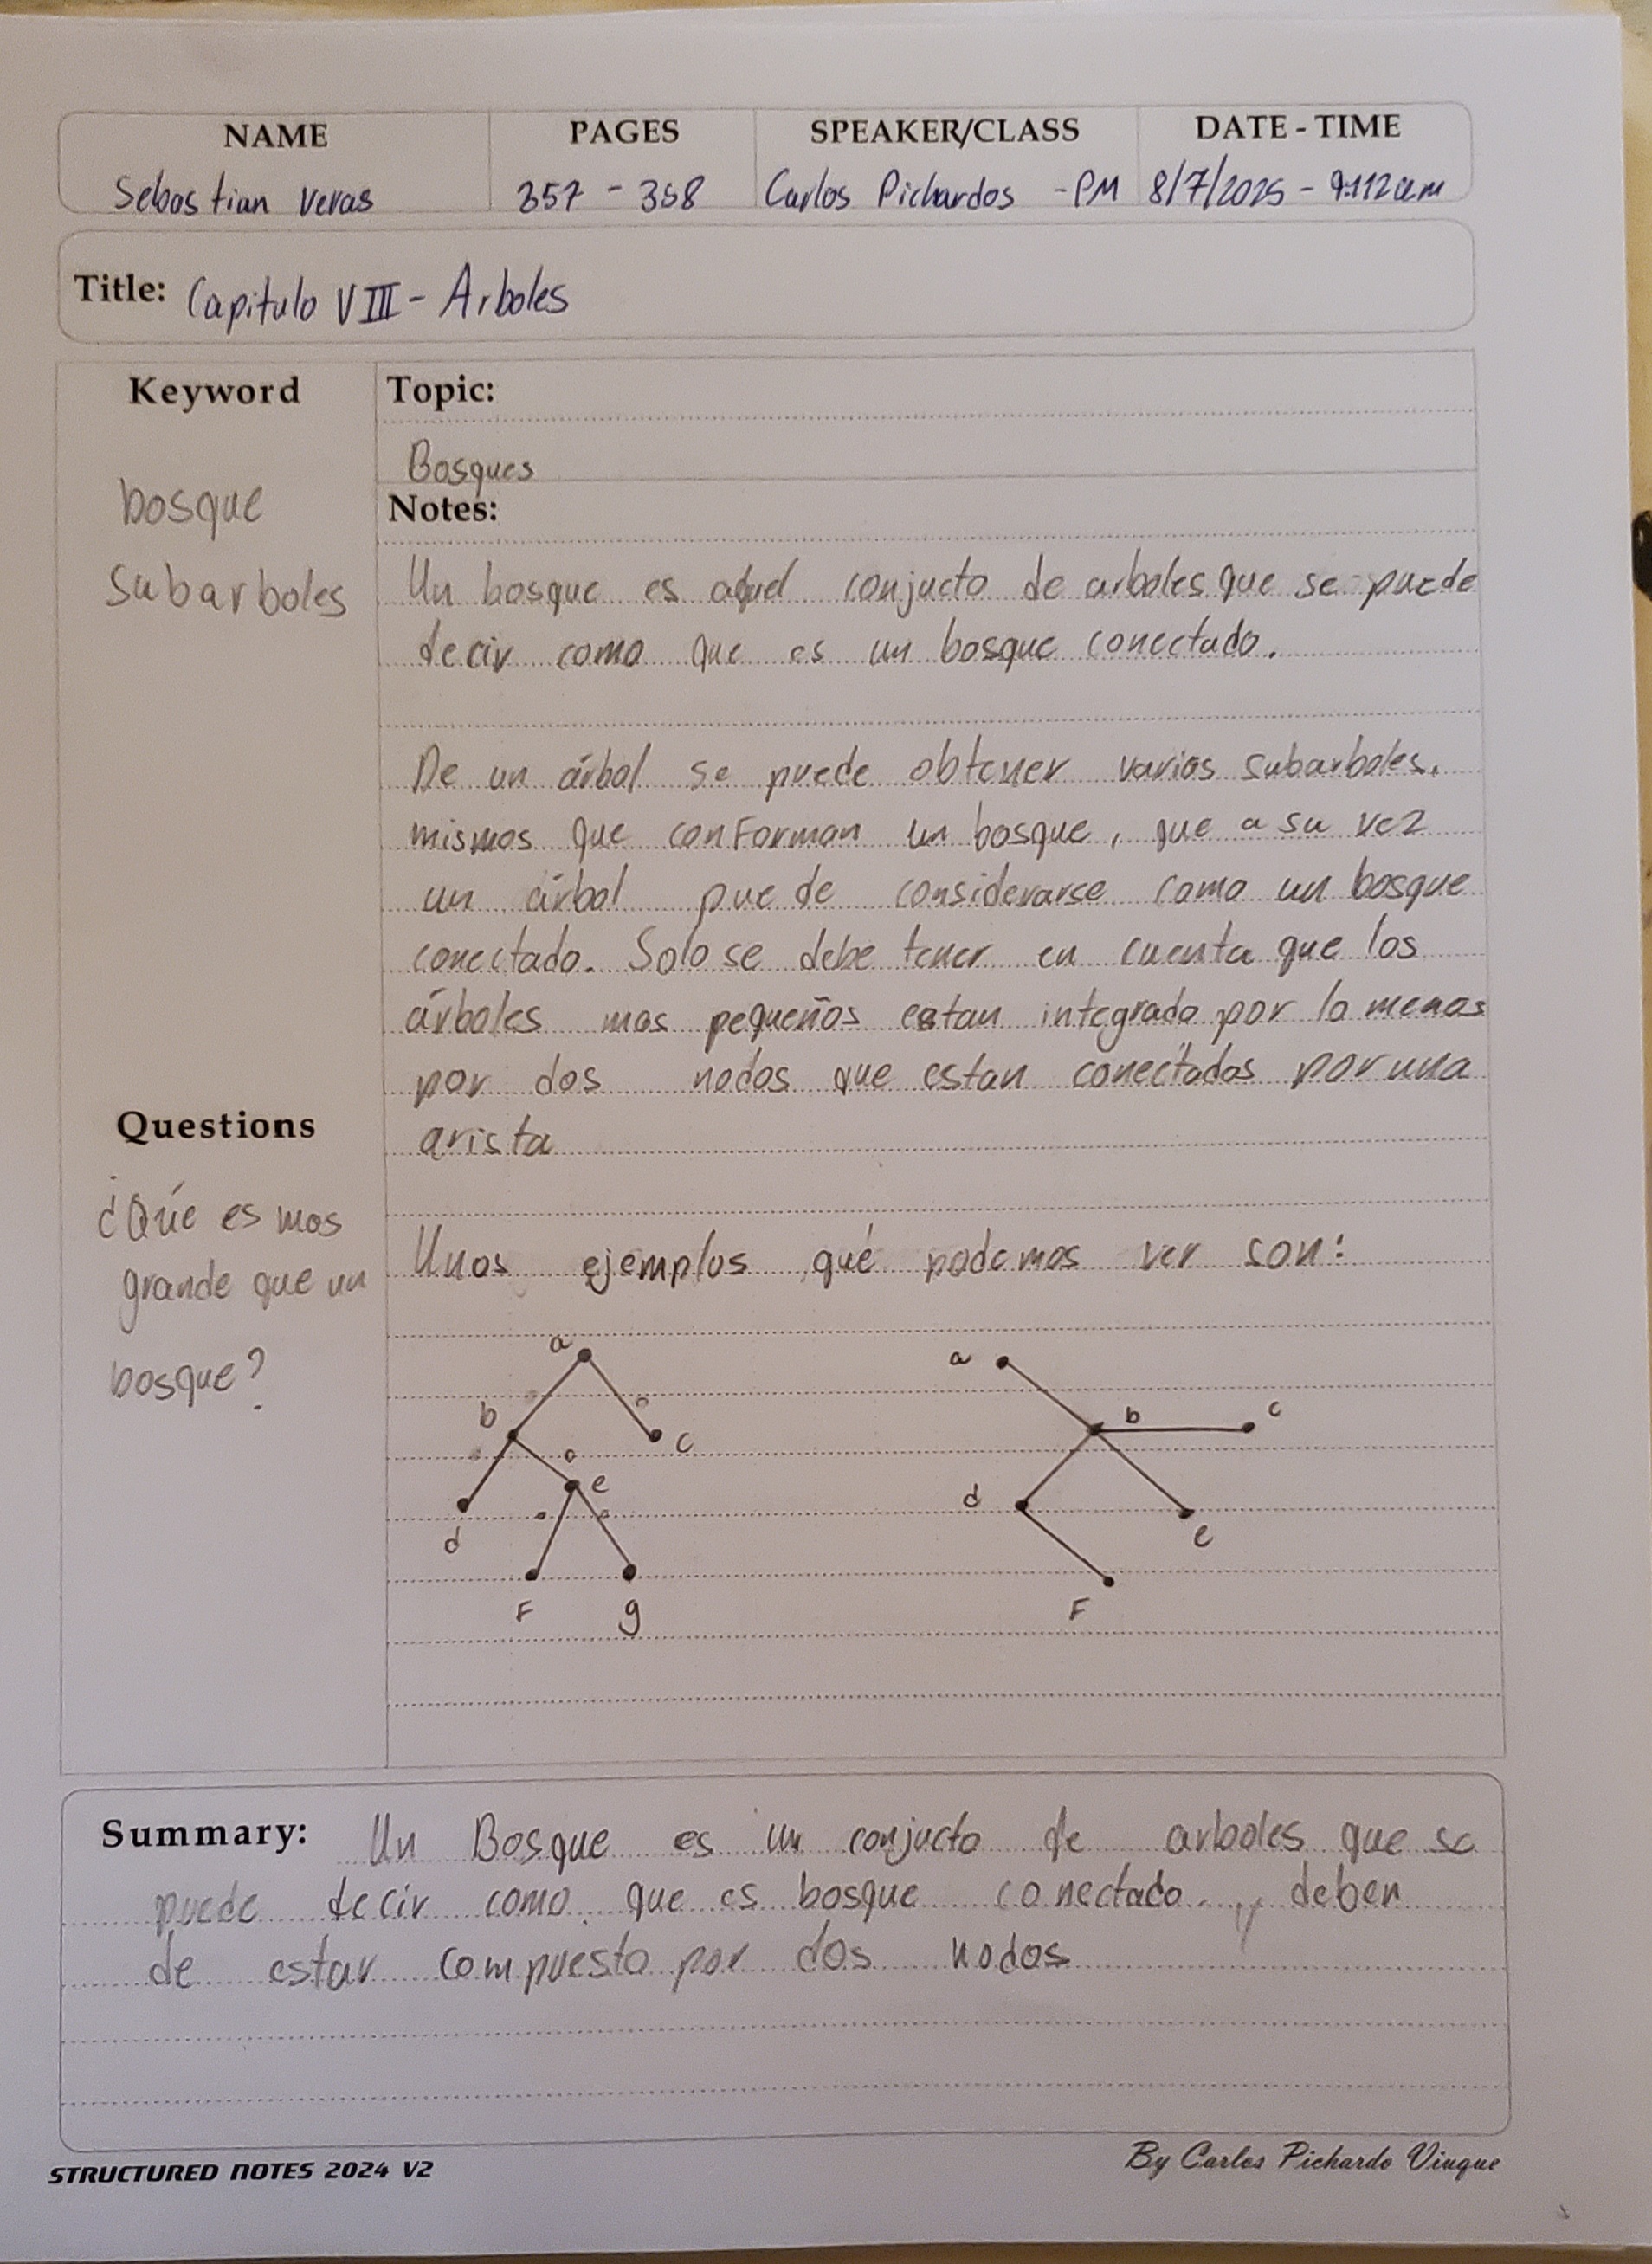 NAME PAGES SPEAKER/CLASS DATE - TIME
Sebastian Veras 357 - 358 Carlos Pichardos - PM 8/7/2025 - 9:112am
Title: Capitulo VIII - Arboles
Keyword
bosque
Subarboles
Topic:
Bosques
Notes:
Un bosque es aquel conjucto de arboles que se puede
decir como que es un bosque conectado.
De un árbol se puede obtener varios subarboles.
mismos que conForman un bosque, que a su vez
un árbol puede considerarse como un bosque
conectado. Solo se debe tener en cuenta que los
árboles mas pequeños estan integrado por lo menos
por dos nodos que estan conectados por una
arista
Questions
¿Qúe es mas
grande que un
bosque?
Unos ejemplos qué podemos ver son:
a
b
c
e
d
F g
a
b
c
d
e
F
Summary: Un Bosque es un conjucto de arboles que se
puede decir como que es bosque conectado y deben
de estar compuesto por dos nodos
STRUCTURED NOTES 2024 V2
By Carlos Pichardo Viuque